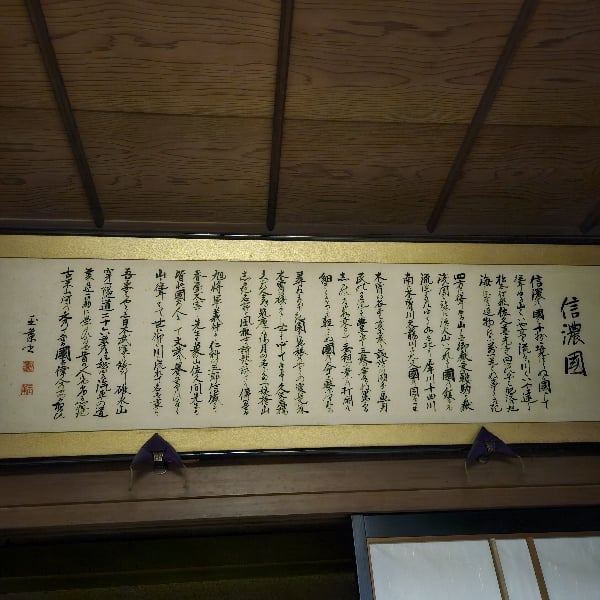 信濃國
信濃の國は十州に境連ぬる國にして
聳ゆる山はいや高く流るる川はいや遠し
松本伊那佐久善光寺四つの平は肥沃の地
海こそなけれ物さわに萬足らわぬ事ぞなき
四方に聳ゆる山々は御嶽乗鞍駒ヶ嶽
浅間は殊に活火山いずれも國の鎮めなり
流れ淀まずゆく水は北に犀川千曲川
南に木曽川天竜川これまた國の固めなり
木曽の谷には真木茂り諏訪の湖には魚多し
民のかせぎも豊かにて五穀の実らぬ里やある
しかのみならず桑とりて蚕飼いの業の打ちひらけ
細きよすがも軽からぬ國の命を繋ぐなり
尋ねまほしき園原や旅のやどりの寝覚の床
木曽の棧かけし世も心してゆけ久米路橋
くる人多き筑摩の湯月の名にたつ姨捨山
しるき名所と風雅士が詩歌に詠てぞ傳えたる
旭将軍義仲も仁科の五郎信盛も
春台太宰先生も象山佐久間先生も
皆此國の人にして文武の誉たぐいなく
山と聳えて世に仰ぎ川と流れて名は尽ず
吾妻はやとし日本武嘆き給いし碓氷山
穿つ隧道二十六夢にもこゆる汽車の道
みち一筋に学びなば昔の人にや劣るべき
古来山河の秀でたる國は偉人のある習い